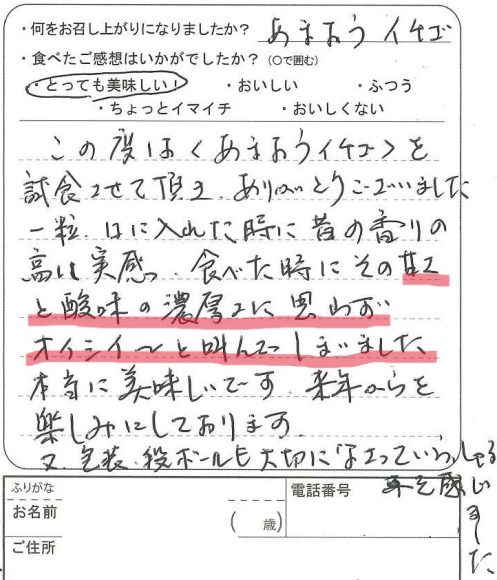 ・何をお召し上がりになりましたか？ あまおうイチゴ
・食べたご感想はいかがでしたか？（○で囲む）
・とっても美味しい！ ・おいしい ・ふつう
・ちょっとイマイチ ・おいしくない
この度は〈あまおうイチゴ〉を
試食させて頂き、ありがとうございました
一粒、口に入れた時に昔の香りの
高い実感、食べた時にその甘さ
と酸味の濃厚さに思わず
オイシイ〜と叫んでしまいました
本当に美味しいです。来年からを
楽しみにしております。
又、包装、段ボールも大切になさっていらっしゃる
事を感じました
ふりがな
お名前
（ 歳）
電話番号
ご住所